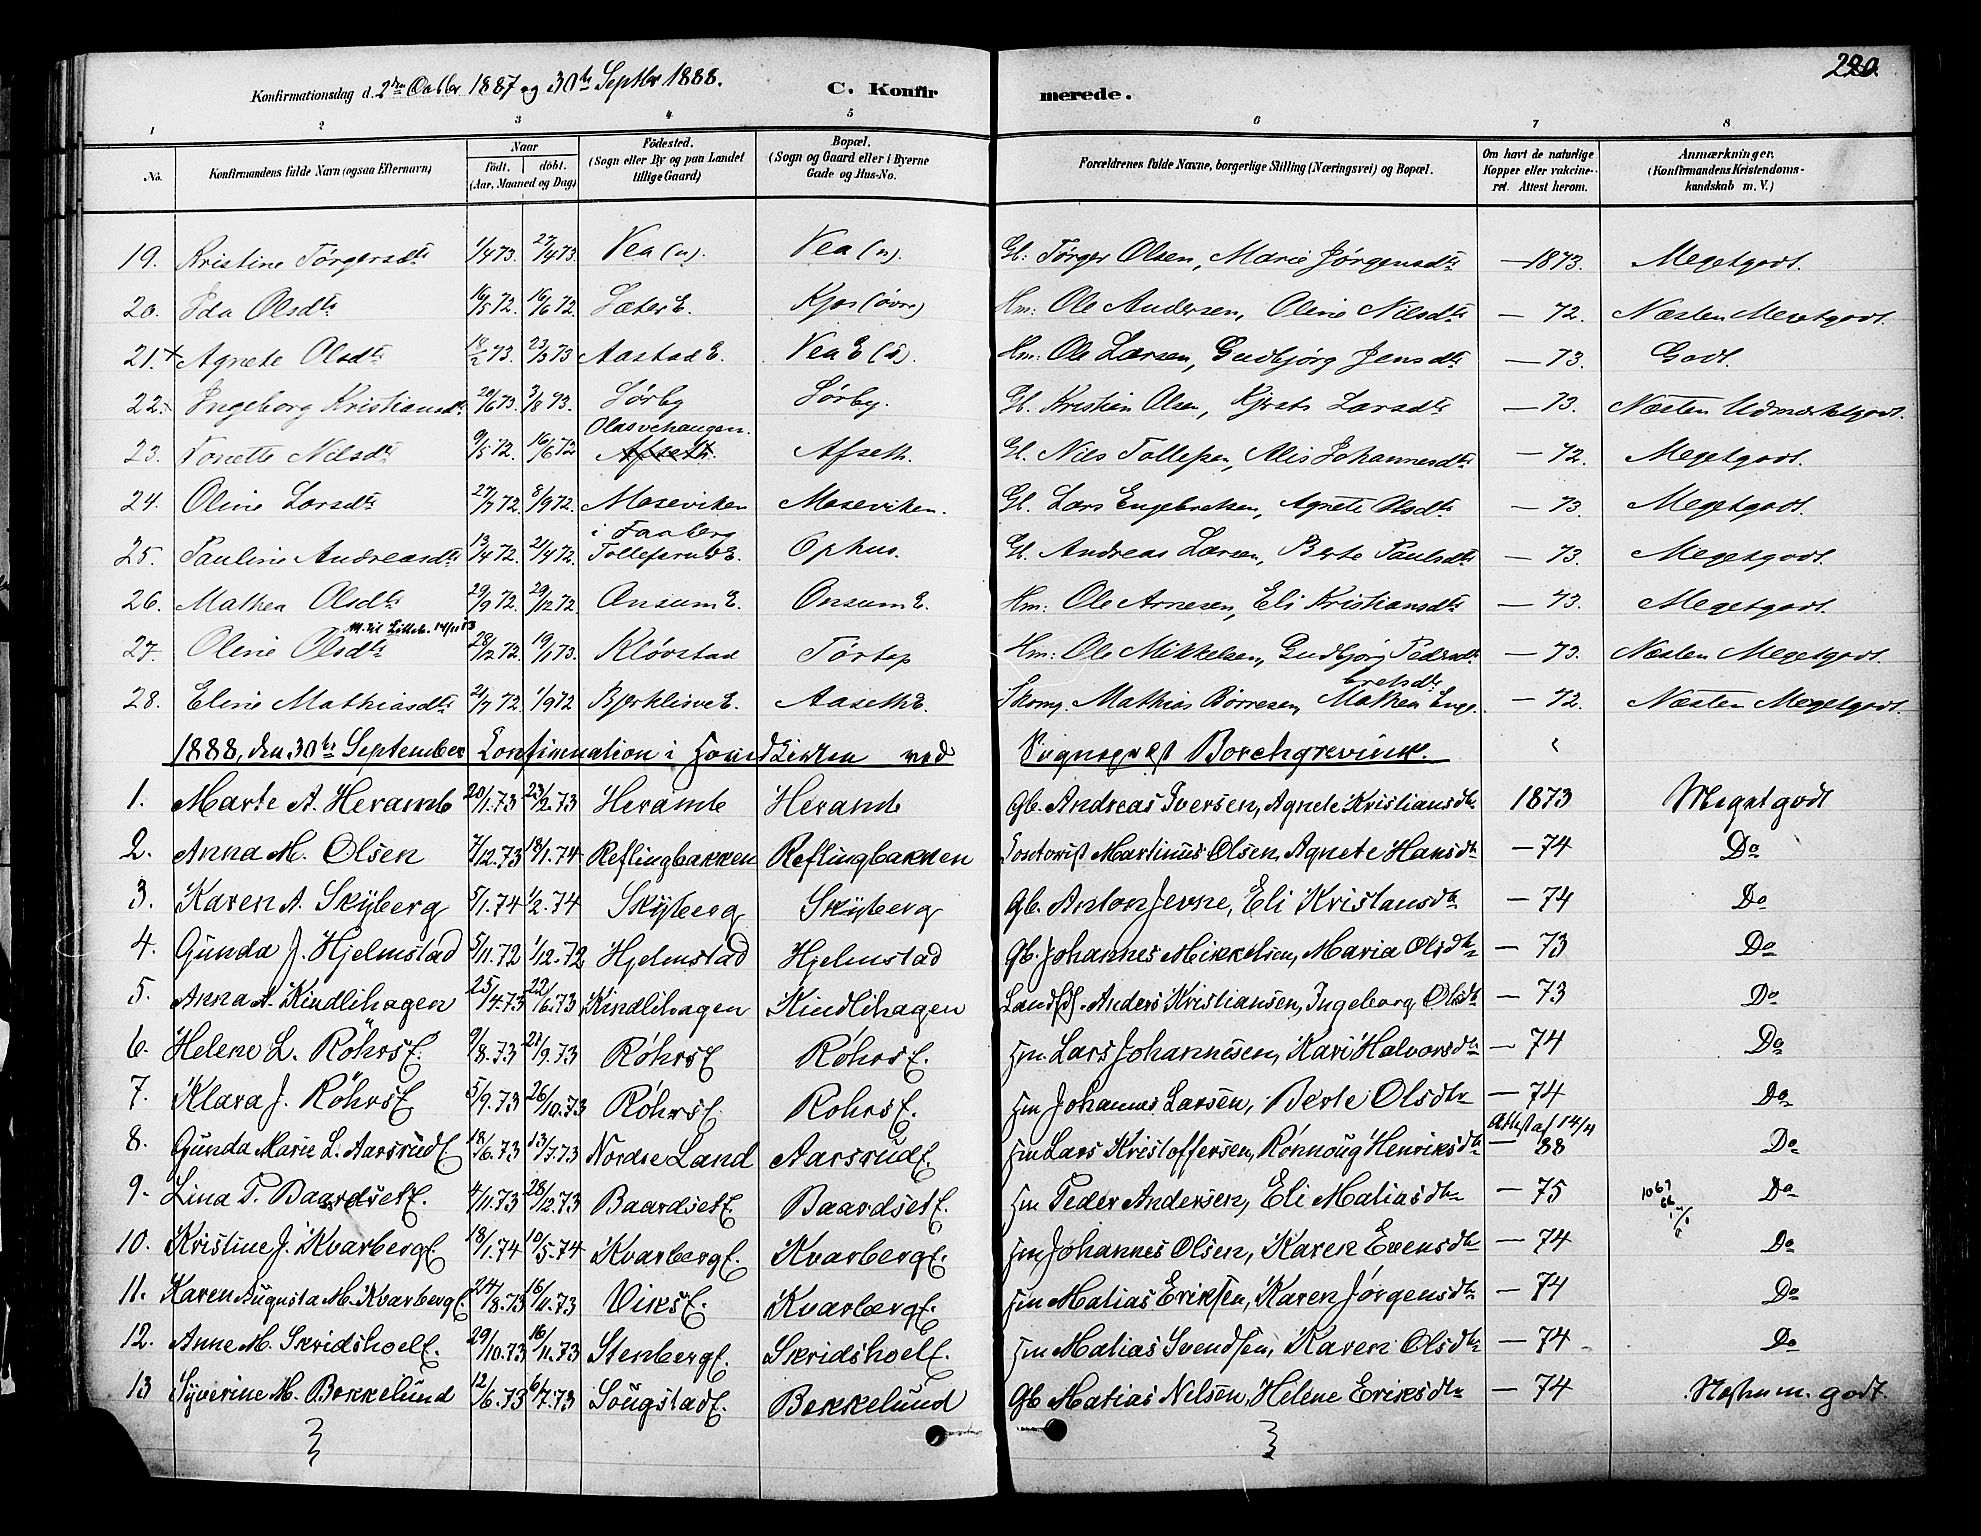 220.
Konfirmationsdag d. 2den Octbr 1887 og 30te Septbr 1888. C. Konfirmerede.
1 2 3 4 5 6 7 8
No. Konfirmandens fulde Navn (ogsaa Efternavn) Naar født. døbt. (Aar, Maaned og Dag) Fødested. (Sogn eller By og paa Landet tillige Gaard) Bopæl. (Sogn og Gaard eller i Byerne Gade og Hus-No. Forældrenes fulde Navne, borgerlige Stilling (Næringsvei) og Bopæl. Om havt de naturlige Kopper eller vakcineret. Attest herom. Anmærkninger. (Konfirmandens Kristendomskundskab m. V.)
19. Kristine Törgersdtr 1/4 73. 27/4 73. Vea (n). Vea (n) Gl. Törger Olsen, Marie Jørgensdtr — 1873. Megetgodt.
20. Ida Olsdtr 16/5 72. 16/6 72. Sæter E. Kjos (övre) Hm: Ole Andersen, Oline Nilsdtr — 72. Næsten Megetgodt.
21. + Agnete Olsdtr 18/2 73. 23/3 73 Aastad E. Vea E (s). Hm: Ole Larsen, Gudbjörg Jensdtr — 73. Godt.
22. Ingeborg Kristiansdtr 20/6 73. 3/8 73. Sørby Sørby. Gl. Kristian Olsen, Kjersti Larsdtr — 73. Næsten Udmærketgodt.
Olasvehaugen.
23. Tonette Nilsdtr 9/5 72. 16/6 72 Afseth. Afseth. Gl. Nils Tollefsen, Alis Johannesdtr — 72. Megetgodt.
24. Oline Larsdtr 27/7 72. 8/9 72. Moseviken Moseviken. Gl. Lars Engebretsen, Agnete Olsdtr — 73. Megetgodt.
i Faaberg
25. Pauline Andreasdtr 13/4 72. 21/4 72. Tollefsrud E. Ophus. Gl. Andreas Larsen, Berte Paulsdtr — 73. Megetgodt.
26. Mathea Olsdtr 29/9 72. 29/12 72. Onsum E. Onsum E. Hm: Ole Arnesen, Eli Kristiansdtr — 73. Megetgodt.
27. Oline Olsdtr 28/12 72. 19/1 73. Kløvstad Tørtop Hm: Ole Mikkelsen, Gudbjörg Pedersdtr — 73. Næsten Megetgodt.
28. Eline Mathiasdtr 21/7 72. 1/9 72 Bjerklisve E. Aaseth E. Skom. Mathias Börresen, Mathea Engebretsdtr — 72. Næsten Megetgodt.
1888, den 30te September Confirmation i Hovedkirken ved Sognepræst Borchgrevink.
1. Marte A. Heramb 20/1.73 23/2.73 Heramb Heramb Gb. Andreas Iversen, Agnete Kristiansdtr 1873 Meget godt
2. Anna M. Olsen 7/12.73 18/1.74 Reflingbakken Reflingbakken Contorist Martinus Olsen, Agnete Hansdtr — 74 Do
3. Karen A. Skÿberg 5/1.74 1/2.74 Skÿberg Skÿberg Gb. Anton Jevne, Eli Kristansdtr — 74 Do
4. Gunda J. Hjelmstad 5/11.72 1/12.72 Hjelmstad Hjelmstad Gb. Johannes Mikkelsen, Maria Olsdtr — 73 Do
5. Anna A. Kindlihagen 25/4.73 22/6.73 Kindlihagen Kindlihagen Anders Kristiansen, Ingeborg Olsdtr — 73 Do
6. Helene L. RöhrsE. 9/8.73 21/9.73 RöhrsE RöhrsE. Hm. Lars Johannesen, Kari Halvorsdtr — 74 Do
7. Klara J. RöhrsE 5/9.73 26/10.73 RöhrsE. RohrsE. Hm Johannes Larsen, Berte Olsdtr — 74 Do
8. Gunda Marie L. AarsrudE 18/6.73 13/7.73 Nordre Land AarsrudE. Hm Lars Kristoffersen, Rönnoug Henriksdtr Attest af 14/4 — 88 Do
9. Lina P. BaardsetE. 4/11.73 28/12.73 BaardsetE. BaardsetE. Hm Peder Andersen, Eli Matiasdtr — 75 Do
10. Kristine J. KvarbergE. 18/1.74 10/5.74 KvarbergE. KvarbergE. Hm Johannes Olsen, Karen Evensdtr — 74 Do
11. Karen Augusta M. KvarbergE. 24/8.73 16/11.73 ViksE. KvarbergE. Hm Matias Eriksen, Karen Jörgensdtr — 74 Do
12. Anne M. SkridshoelE. 29/10.73 16/11.73 StenbergE. SkridshoelE. Hm Matias Svendsen, Karen Olsdtr — 74 Do
13 Syverine M. Bekkelund 12/6.73 6/7.73 SougstadE. Bekkelund Gb Matias Nelsen, Helene Eriksdtr — 74 Næsten m. godt.